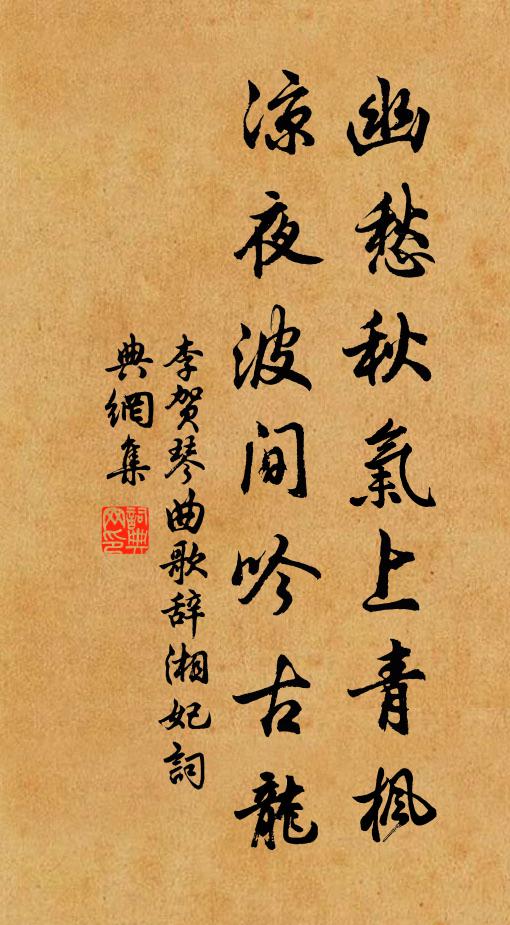 幽愁秋氣上青楓
凉夜波间吟古龍
李贺琴曲歌辞湘妃詞
典網集